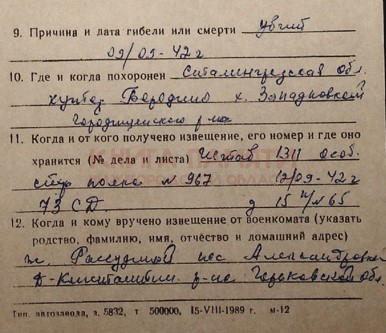 9. Причина и дата гибели или смерти убит
09/09-42 г
10. Где и когда похоронен Сталинградская обл.
хутор Бородино х. Западновской
Городищенского р-на
11. Когда и от кого получено извещение, его номер и где оно
хранится (№ дела и листа) Штаб 1311 особ.
стр полка № 967 17/09-42 г
73 СД д 15
12. Когда и кому вручено извещение от военкомата (указать
родство, фамилию, имя, отчество и домашний адрес)
ж. пос Александровка
Д-Константин. р-на Горьковской обл.
Тип. автозавода, з. 5832, т 500000, 15-VIII-1989 г. м-12